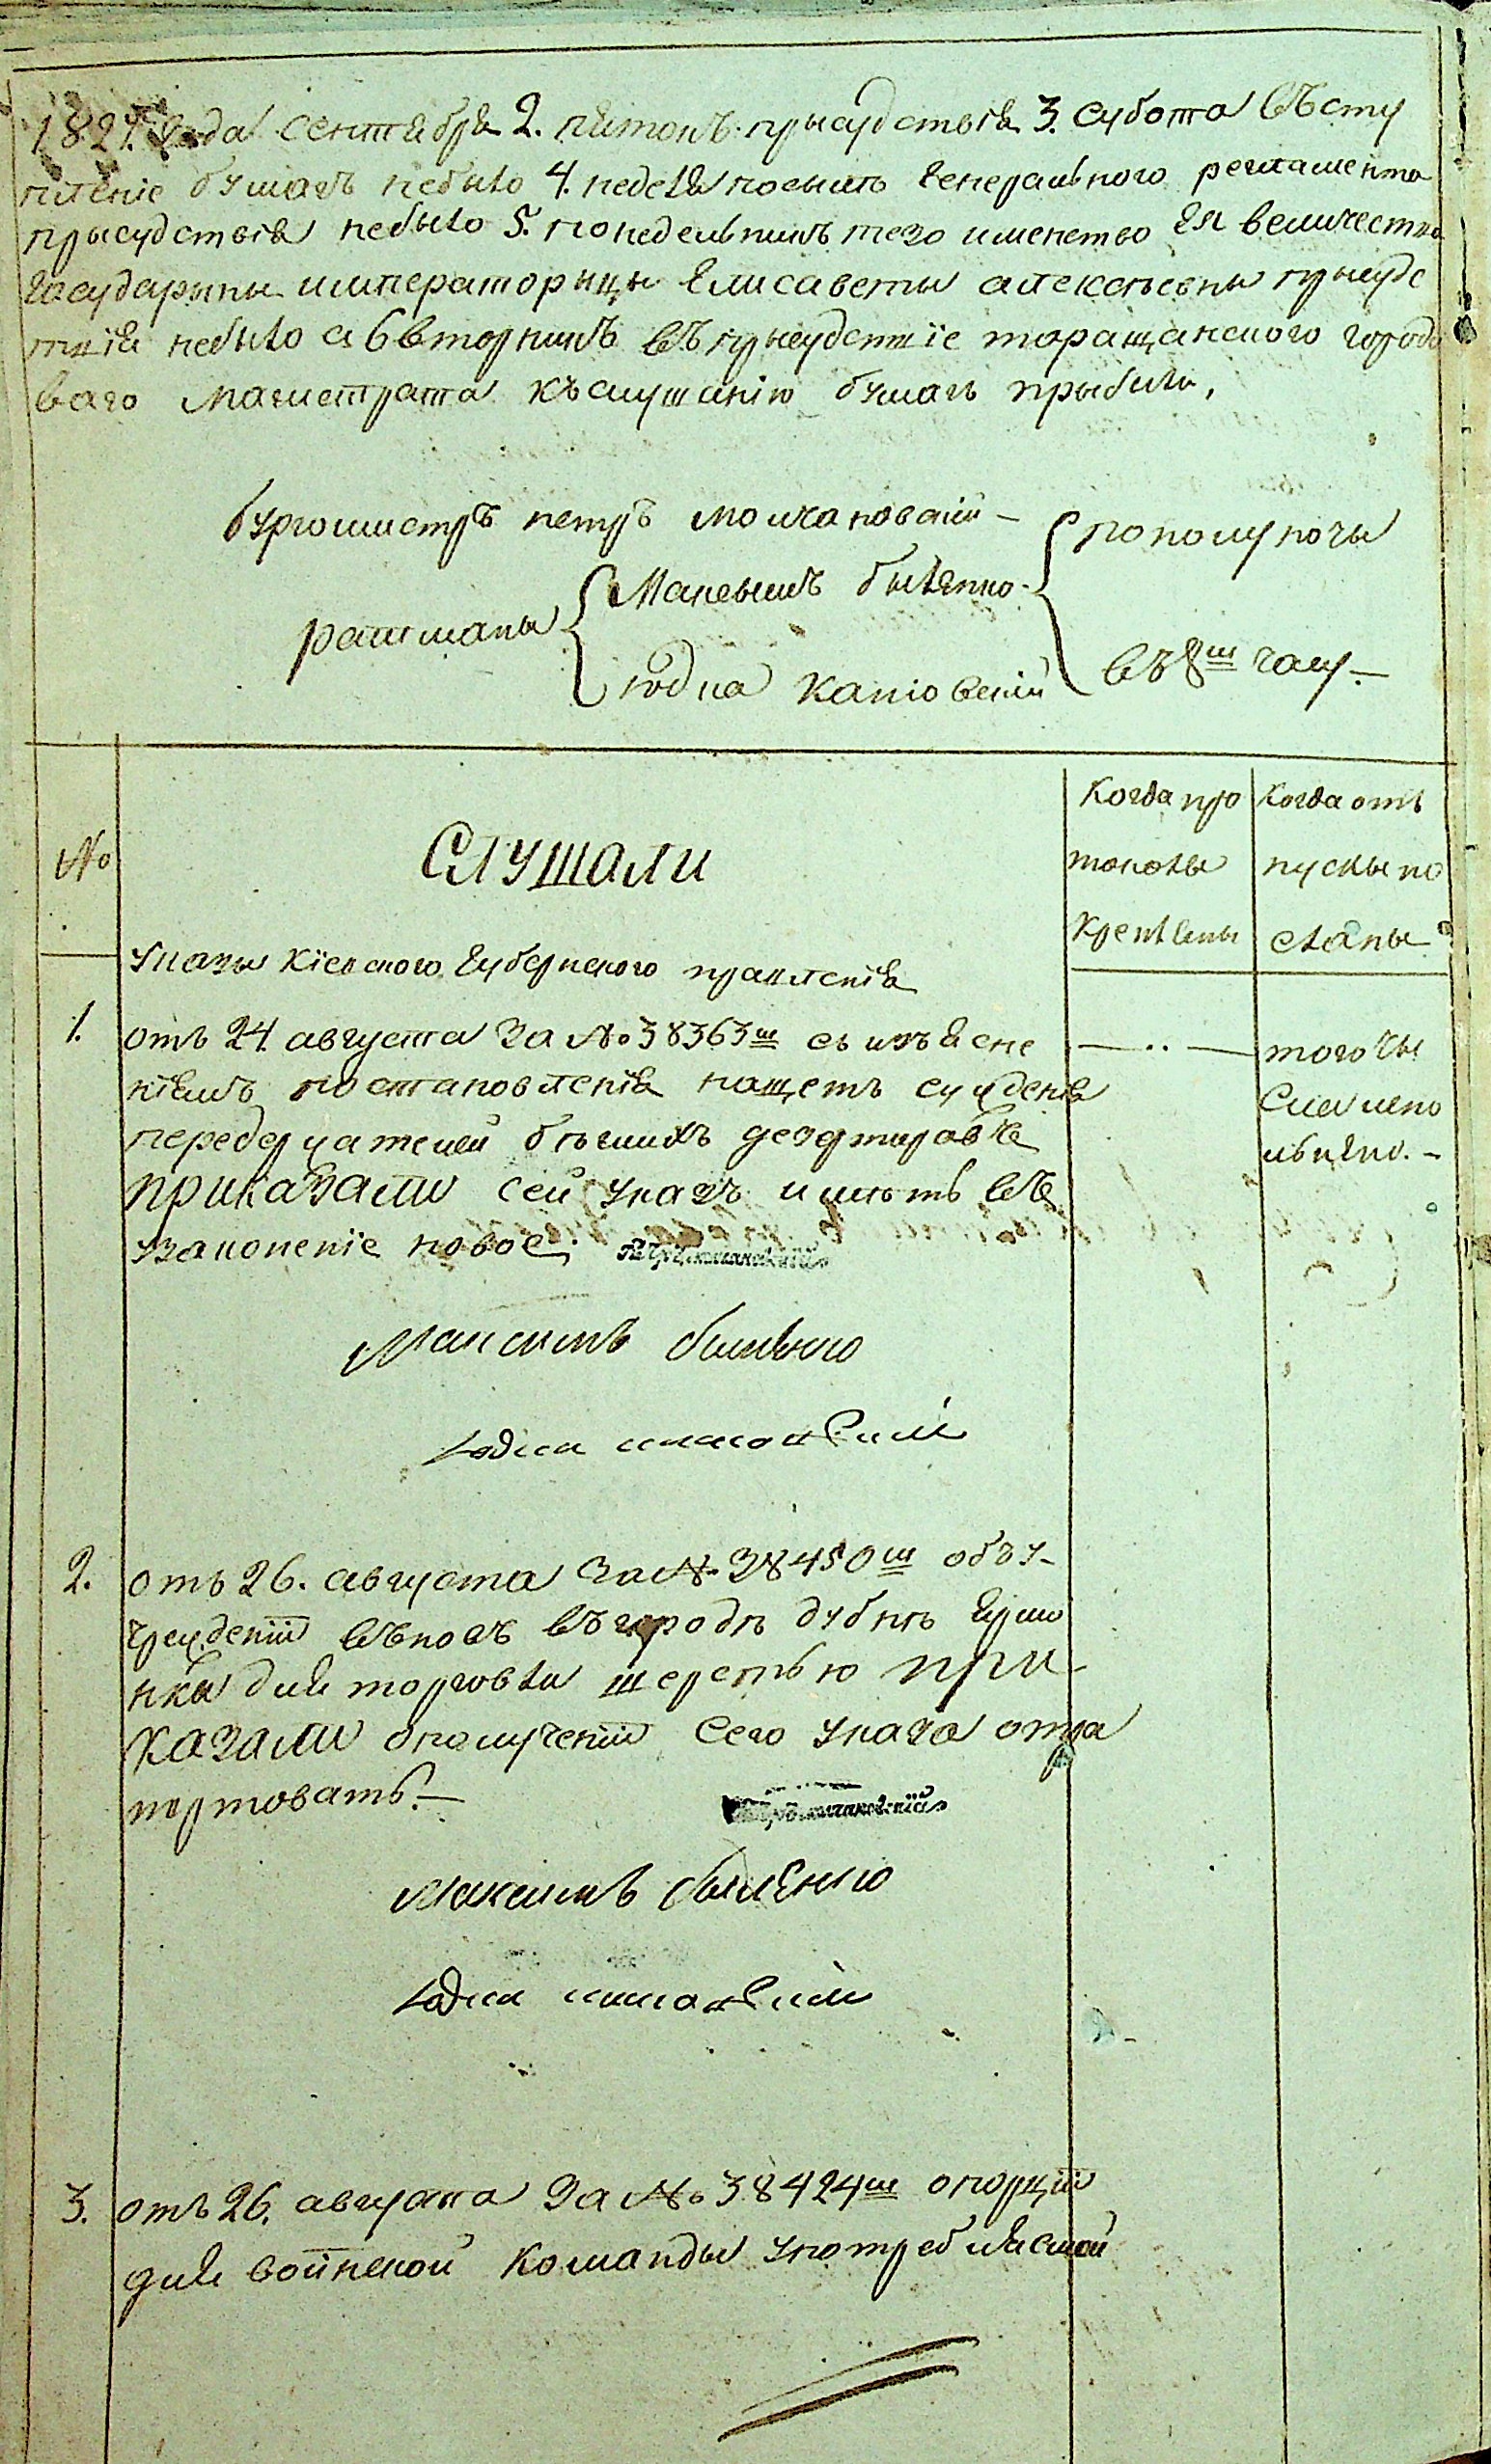 1821. года сентября 2. пятокъ присудствія 3. субота въсту
пленіе бумагъ небыло 4. неделя посилѣ генерального регламента
присудствія небыло 5. понедельникъ тезоименетво Ея величества
государыны императорицы Елисаветы алексѣевны присудс
твія небыло а 6 вторникъ въ присудствіе таращанского городо
ваго магистрата къ слушанію бумагъ прыбыли,
бургомистръ петръ молчановскій —
ратманы
Максымъ былѣнко
юдка каніовскій
пополуночы
въ 8ш часу. —
№
Слушали
Когда про
токолы
крепленны
Когда отъ
пускы по
сланы
Указы Кіевского губернского правленія
1.
отъ 24 августа за № 38363ш съ изъясне
ніемъ постановленія нащетъ сужденія
передержателей бѣглихъ дезертировъ
приказали сей указъ имѣть въ
узаконеніе новое,
— .. —
того чы
сла испо
лынено. —
Максимъ былѣнко
2.
отъ 26. августа за № 38450ш объ у-
чреждепіи вновъ въ городѣ дубнѣ ярмо
нкы для торговли шерстью при-
казали ополученіи сего указа отра
портовать. —
Максимъ былѣнко
3.
отъ 26. августа за № 38424ш опорціи
для воинской команды употребляемой